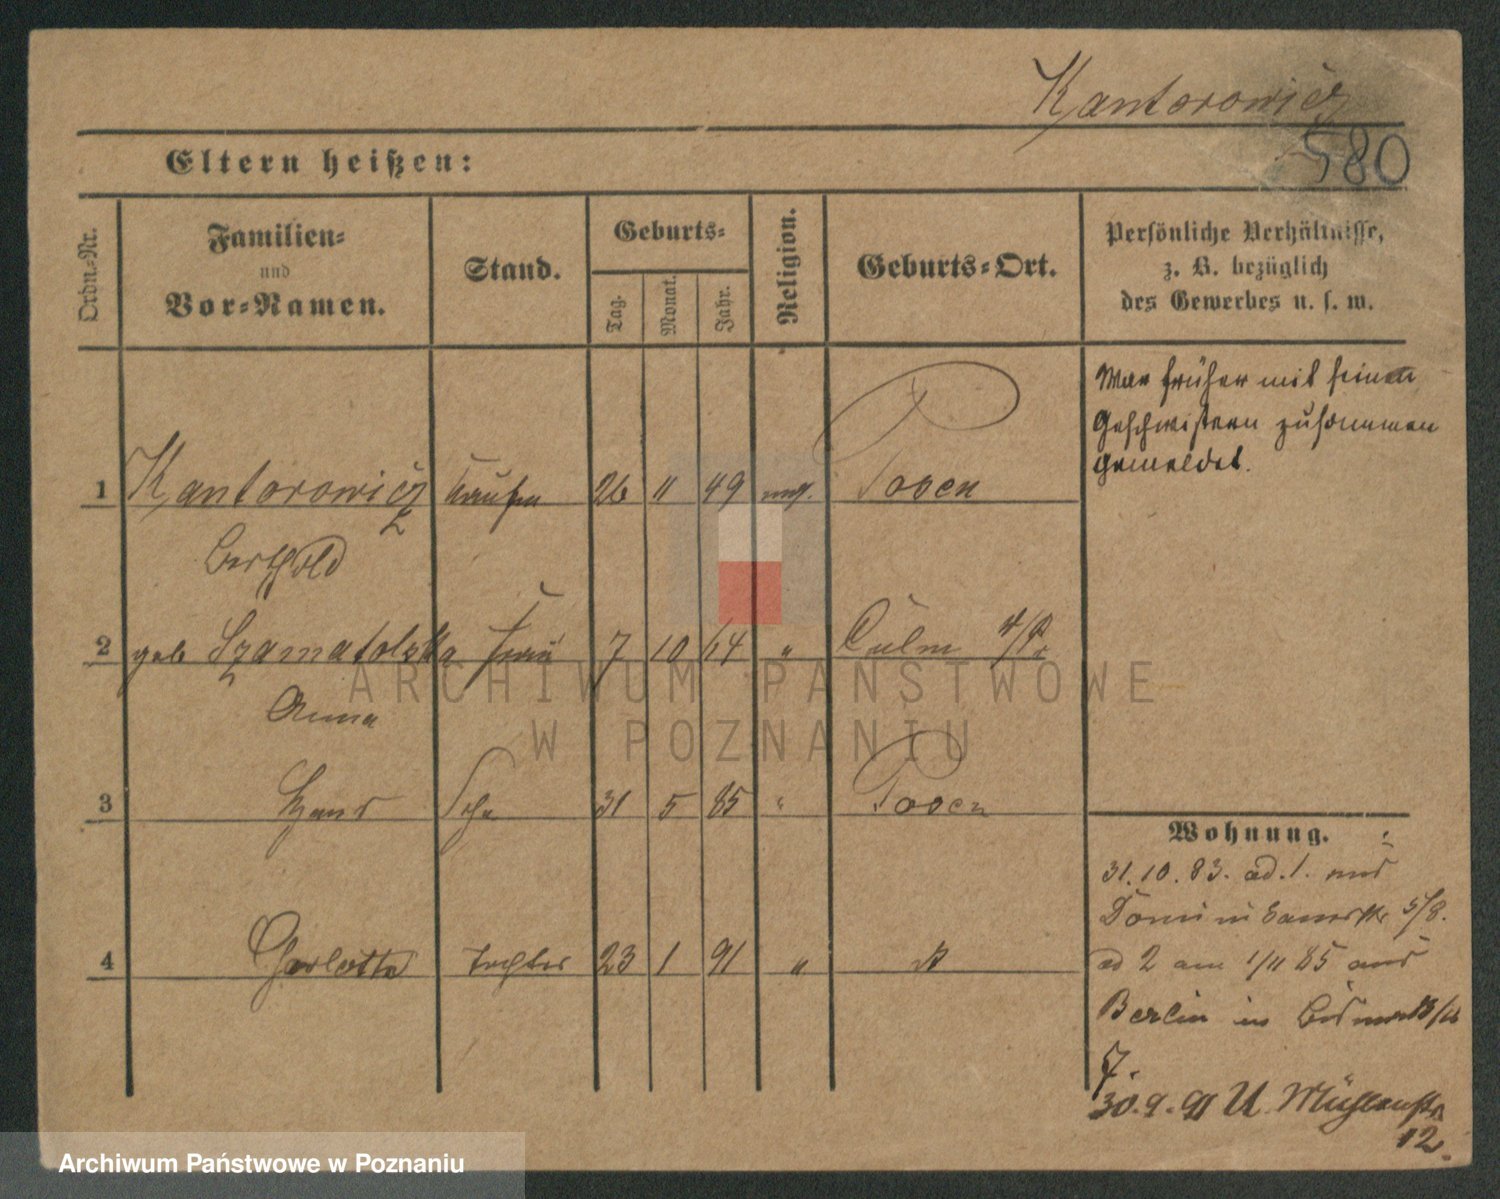 Kantorowicz
580
Eltern heißen:
Ordn.-Nr.
Familien-
und
Vor-Namen.
Stand.
Geburts-
Tag.
Monat.
Jahr.
Religion.
Geburts-Ort.
Persönliche Verhältnisse,
z. B. bezüglich
des Gewerbes u. s. w.
War früher mit seinen
Geschwistern zusammen
gemeldet.
1 Kantorowicz Kaufm 26 11 49 mos. Posen
Berthold
2 geb Szamatolska Frau 7 10 64 " Culm W/Pr
Anna
3 Hans Sohn 31 5 85 " Posen
4 Charlotte Tochter 23 1 91 "
Wohnung.
31.10.83. ad. 1. aus
Dominikanerstr 5/8.
ad 2 am 1/11 85 aus
Berlin in
7.
30.9.91 U Mühlenstr
12.
ARCHIWUM PAŃSTWOWE
W POZNANIU
Archiwum Państwowe w Poznaniu